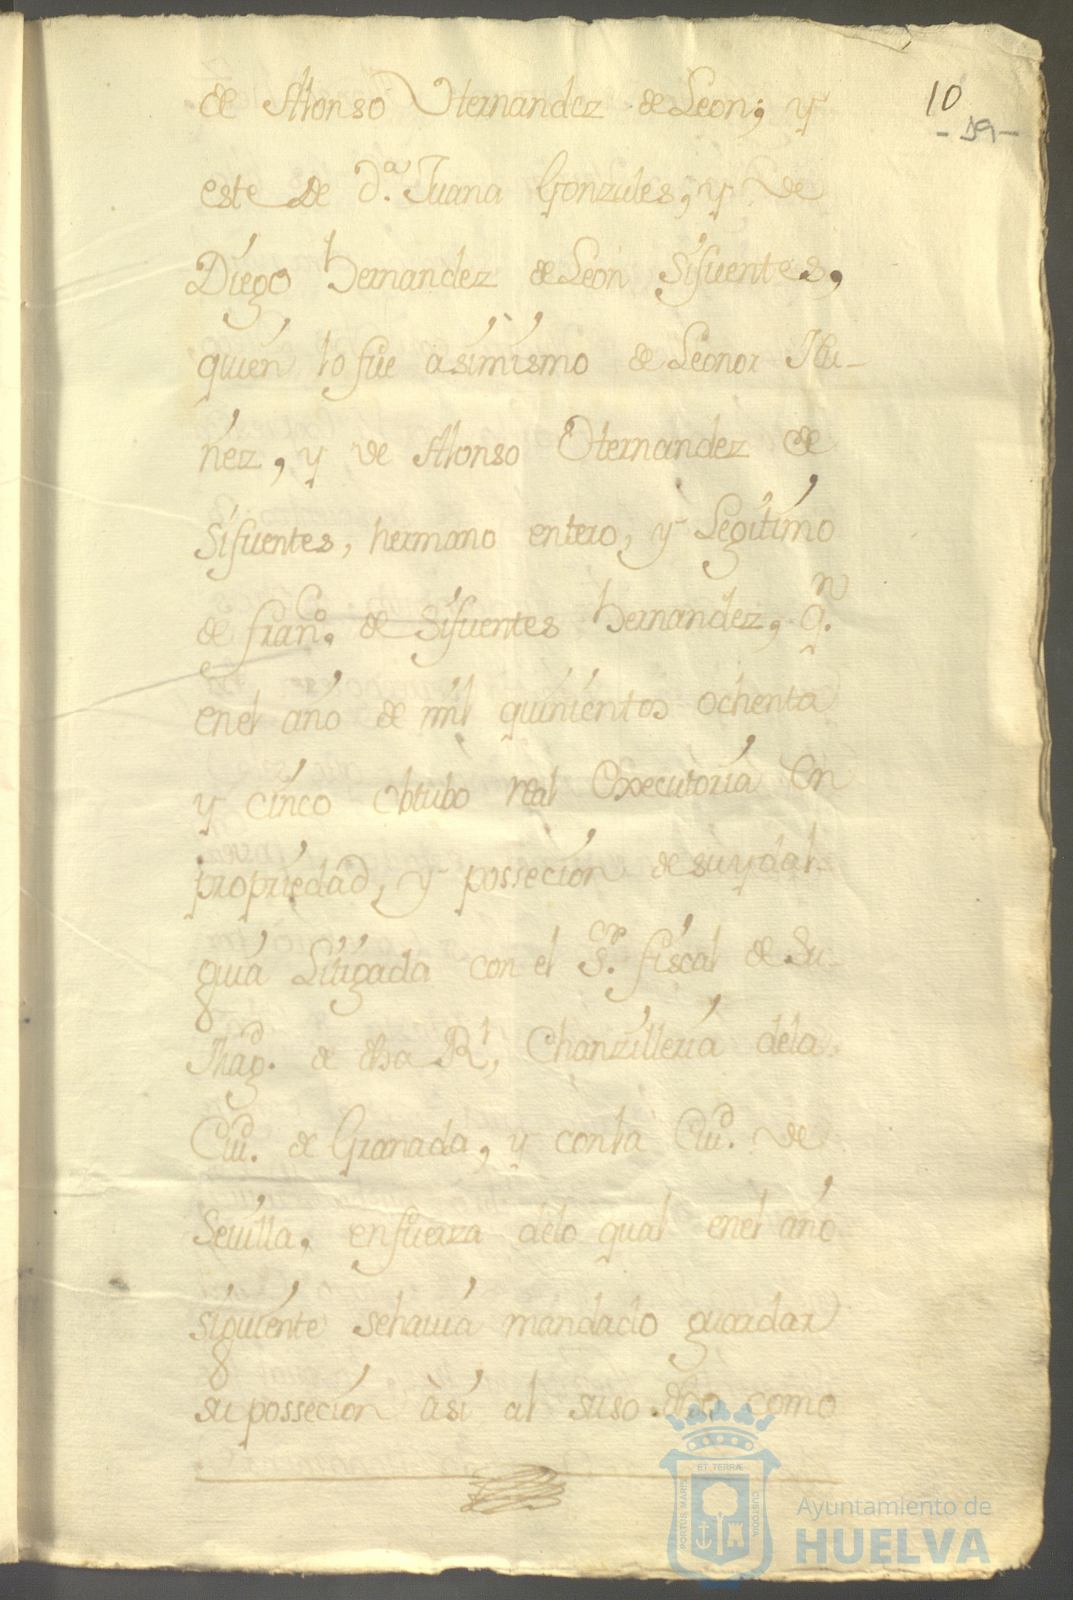 10
- 19 -
de Alonso Hernandez de Leon; y
este de D.ª Juana Gonzales, y de
Diego hernandez de Leon Sifuentes,
quien lo fue asimismo de Leonor Nu-
ñez, y de Alonso Hernandez de
Sifuentes, hermano entero, y Legitimo
de fran.co de Sifuentes hernandez, q.n
enel año de mil quinientos ochenta
y cinco obtubo real Executoria en
propriedad, y possecion de su ydal-
guia Litigada con el S.or fiscal de Su
Mag.d de dha R.l Chanzilleria dela
Ciu.d de Granada, y conla Ciu.d de
Sevilla, enfuerza delo qual enel año
siguiente sehavia mandado guardar
su possecion àsi al suso dho, como
PORTUS MARIS ET TERRÆ CUSTODIA
Ayuntamiento de
HUELVA